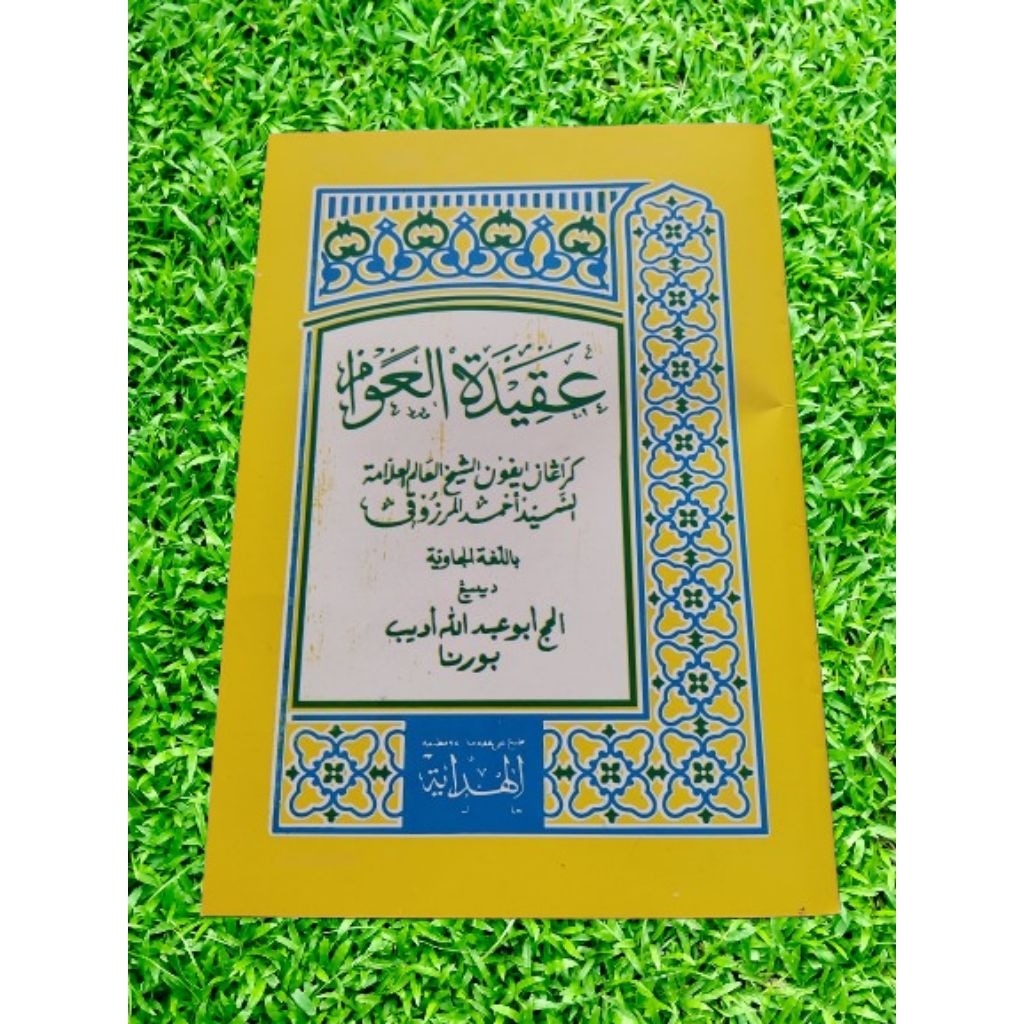 عقيدة العوام
كراڠان ايفون الشيخ العالم العلامة
السيد أحمد المرزوقي
باللغة الجاوية
ديسيڠ
الحج أبو عبد الله أديب
بورنا
الهداية